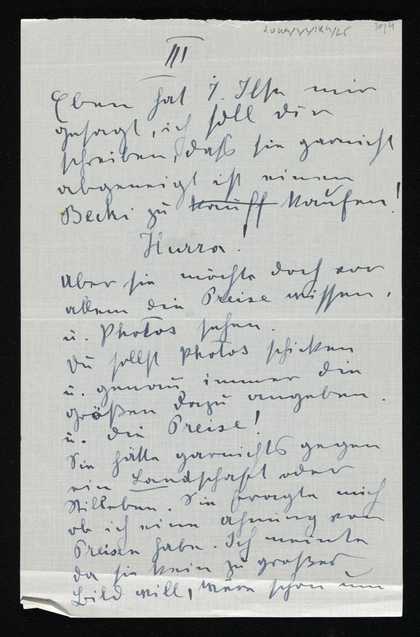 III
Eben hat T. Ilse mir
gesagt, ich soll dir
schreiben, daß sie garnicht
abgeneigt ist einen
Becki zu kauff kaufen!
Hurra!
Aber sie möchte doch vor
allem die Preise wissen,
u. Photos sehen.
Du sollst Photos schicken
u. genau immer die
größen dazu angeben.
u. die Preise!
Sie hätte garnichts gegen
ein Landschaft oder
Stilleben. Sie fragte mich
ob ich eine ahnung von
Preisen habe. Ich meinte
da sie kein zu großes
Bild will, wäre schon um